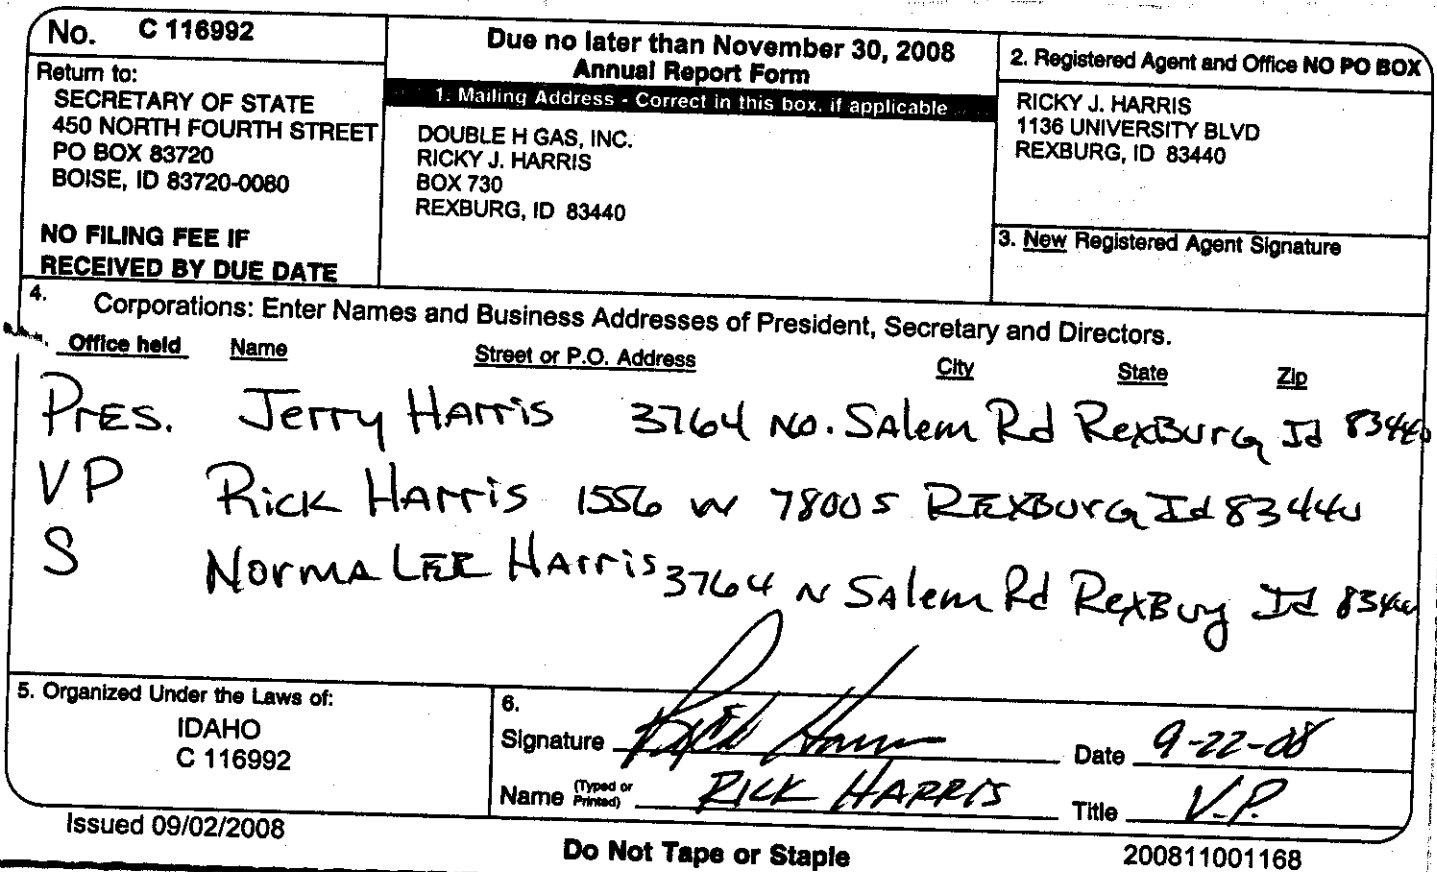 No. C 116992
Return to:
SECRETARY OF STATE
450 NORTH FOURTH STREET
PO BOX 83720
BOISE, ID 83720-0080
NO FILING FEE IF
RECEIVED BY DUE DATE
Due no later than November 30, 2008
Annual Report Form
1. Mailing Address - Correct in this box, if applicable
DOUBLE H GAS, INC.
RICKY J. HARRIS
BOX 730
REXBURG, ID 83440
2. Registered Agent and Office NO PO BOX
RICKY J. HARRIS
1136 UNIVERSITY BLVD
REXBURG, ID 83440
3. New Registered Agent Signature
4. Corporations: Enter Names and Business Addresses of President, Secretary and Directors.
Office held Name Street or P.O. Address City State Zip
PrES. Jerry HArris 3764 No. SAlem Rd RexBurg Id 83440
VP Rick HArris 1556 W 7800 S REXBurg Id 83440
S NormA LEE HArris 3764 N SAlem Rd RexBurg Id 83440
5. Organized Under the Laws of:
IDAHO
C 116992
6.
Signature Rick Harris Date 9-22-08
Name (Typed or Printed) RICK HARRIS Title V.P.
Issued 09/02/2008
Do Not Tape or Staple
200811001168